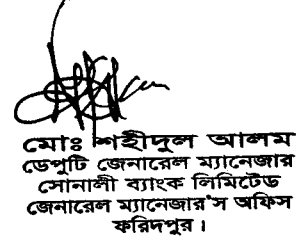 মোঃ শহীদুল আলম
ডেপুটি জেনারেল ম্যানেজার
সোনালী ব্যাংক লিমিটেড
জেনারেল ম্যানেজার'স অফিস
ফরিদপুর।